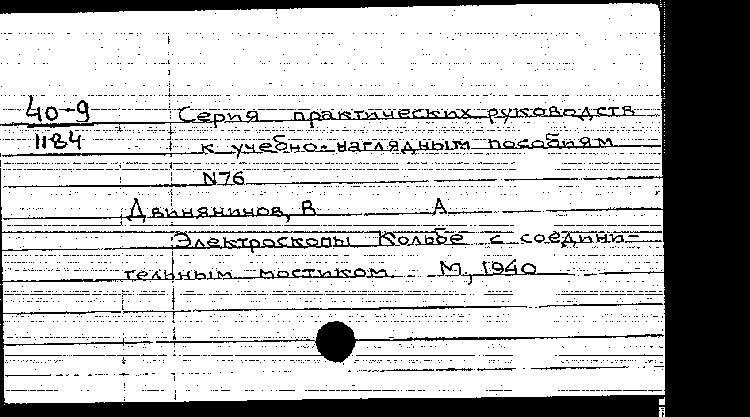 40-9
1184
Серия практических руководств
к учебно-наглядным пособиям
N76
Двинянинов, В А
Электроскопы Кольбе с соедини-
тельным мостиком. М., 1940